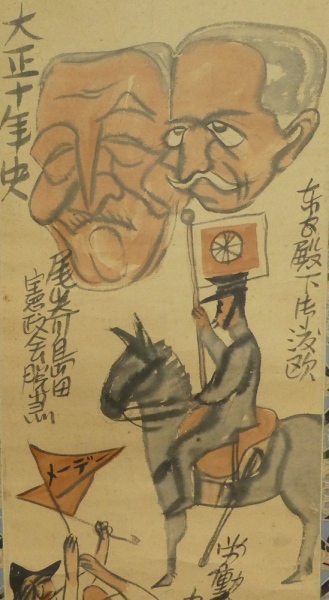 大正十年史
东宮殿下御渡欧
尾崎島田
憲政会脱党
メーデー
労働